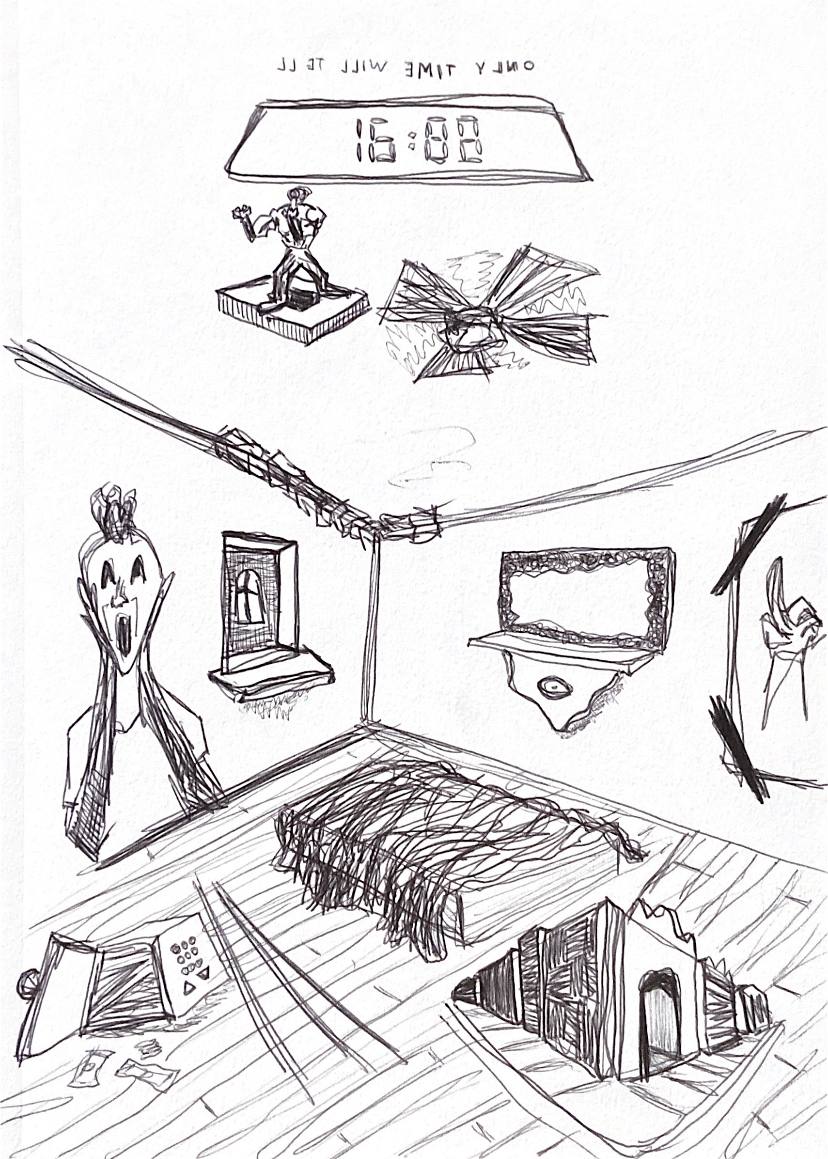 ONLY TIME WILL TELL
16:02